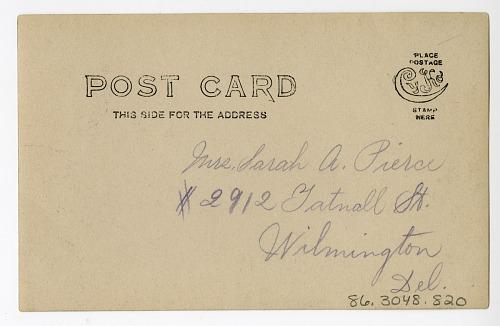 POST CARD
THIS SIDE FOR THE ADDRESS
PLACE
POSTAGE
STAMP
HERE
Mrs. Sarah A. Pierce
# 2912 Tatnall St.
Wilmington
Del.
86.3048.820